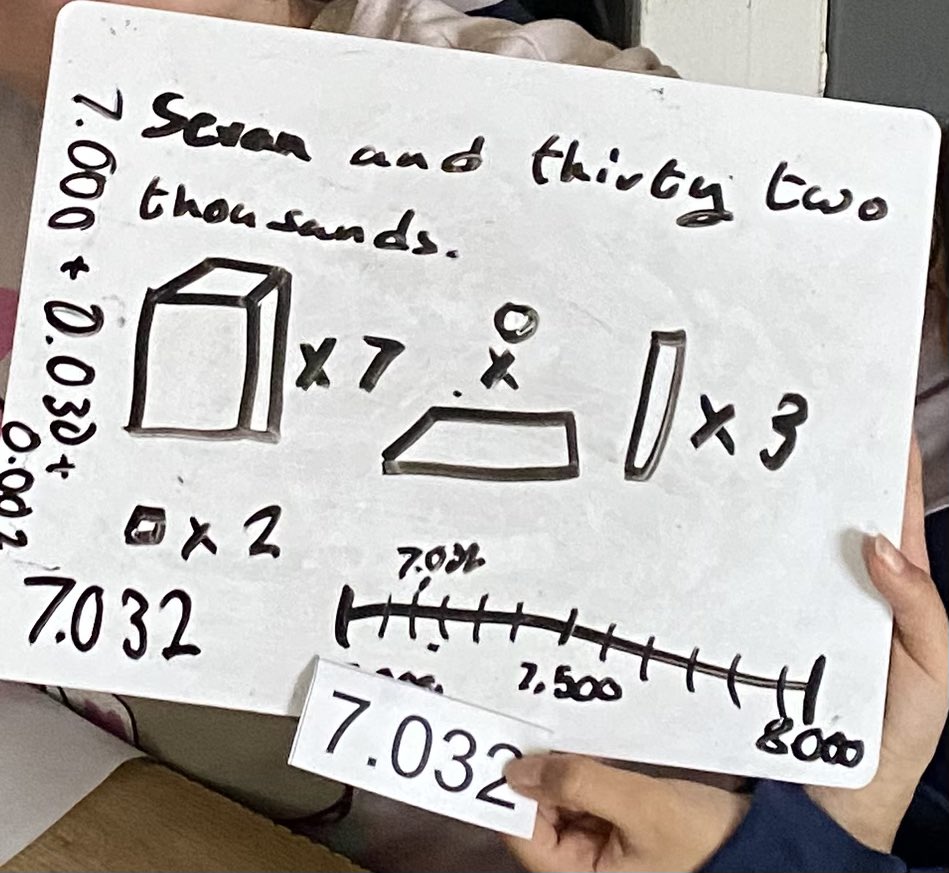 Seven and thirty two
thousands.
7.000 + 0.030+
0.002
x 7
0
x
x 3
x 2
7.032
7.500
8000
7.032